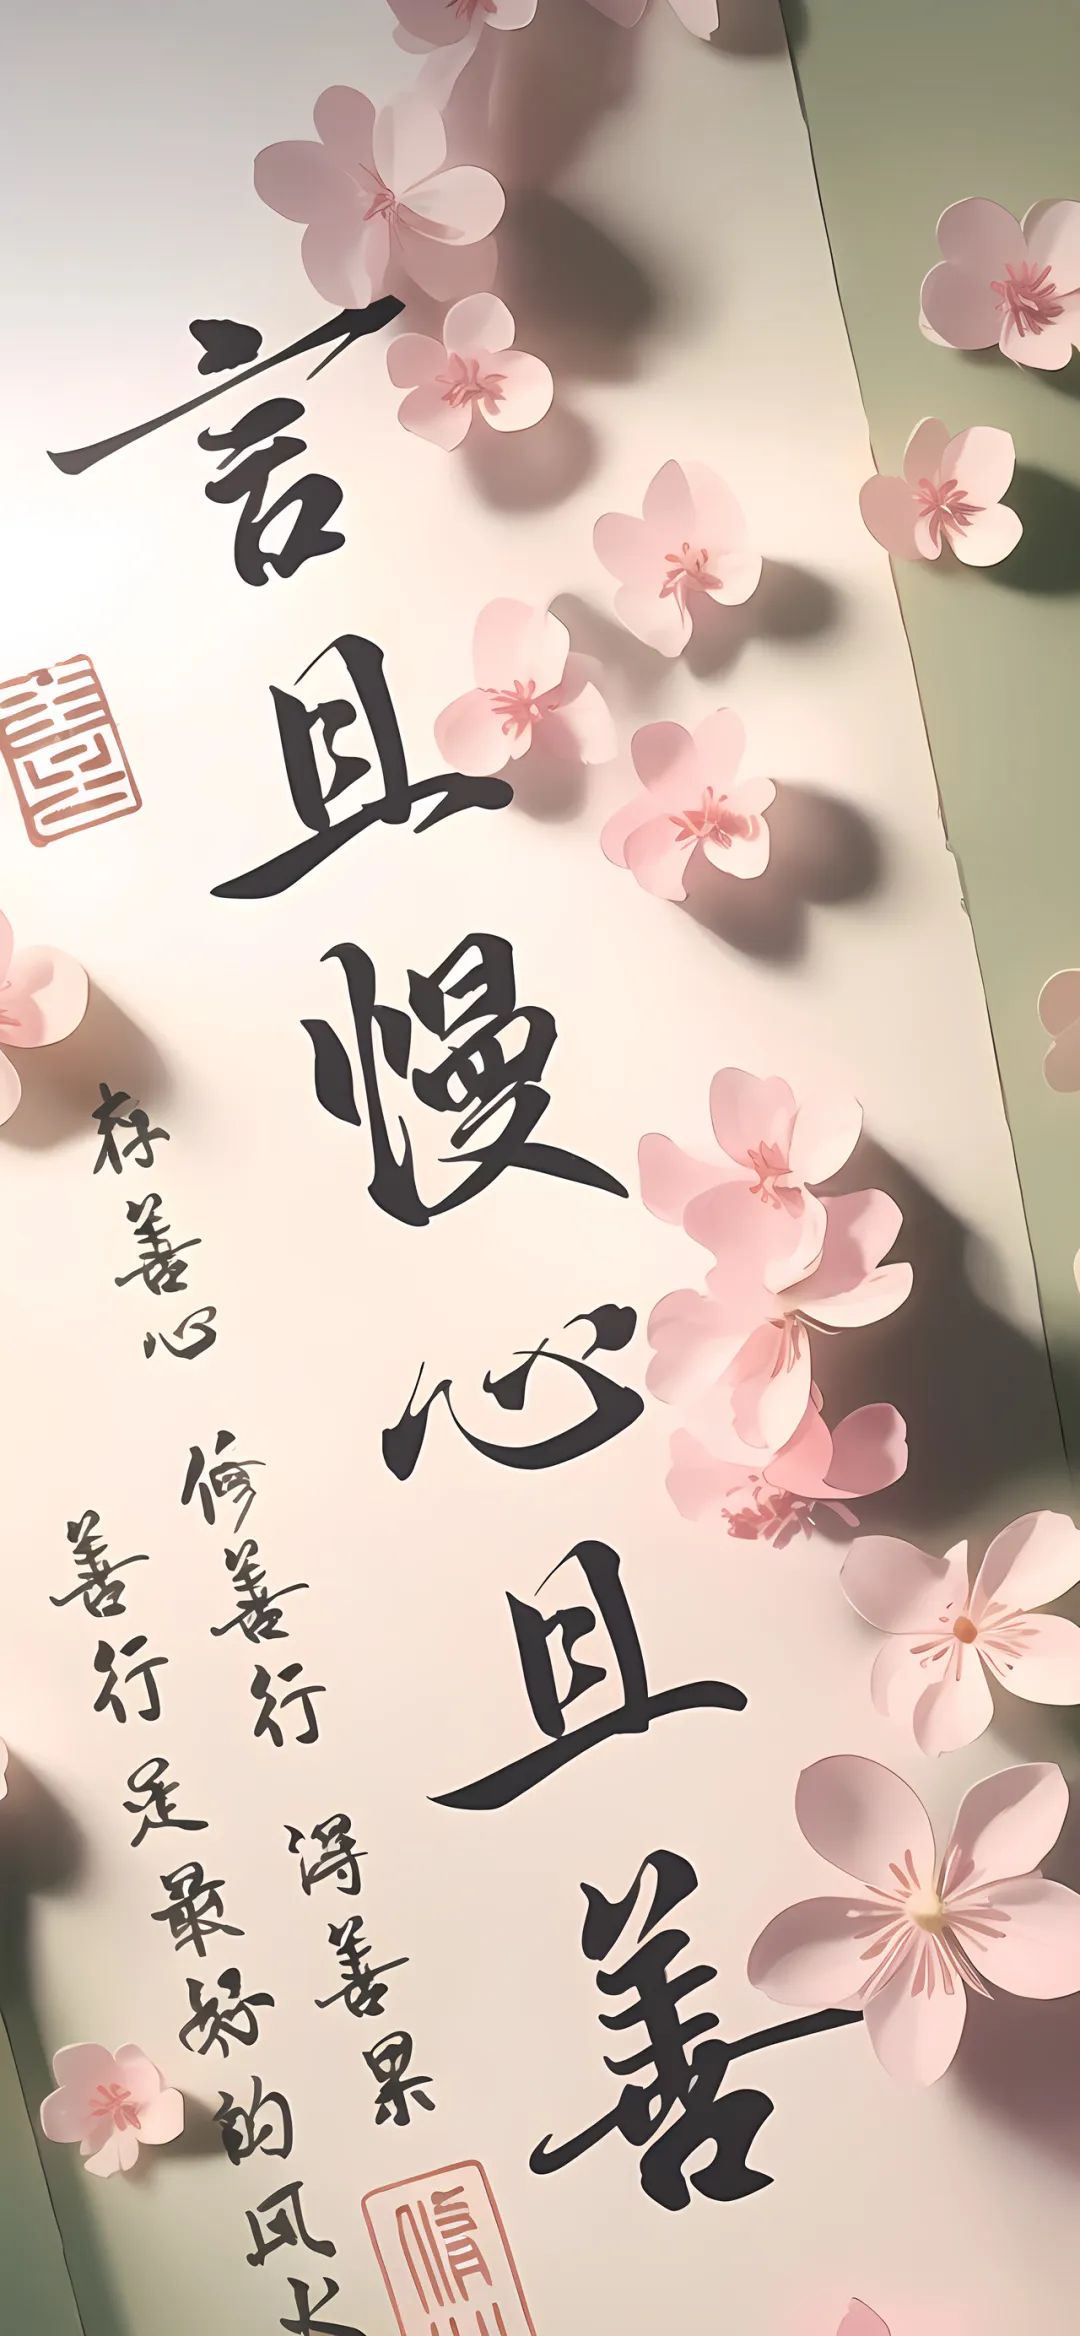 言且慢心且善
存善心 修善行 得善果
善行是最好的风水
善
修